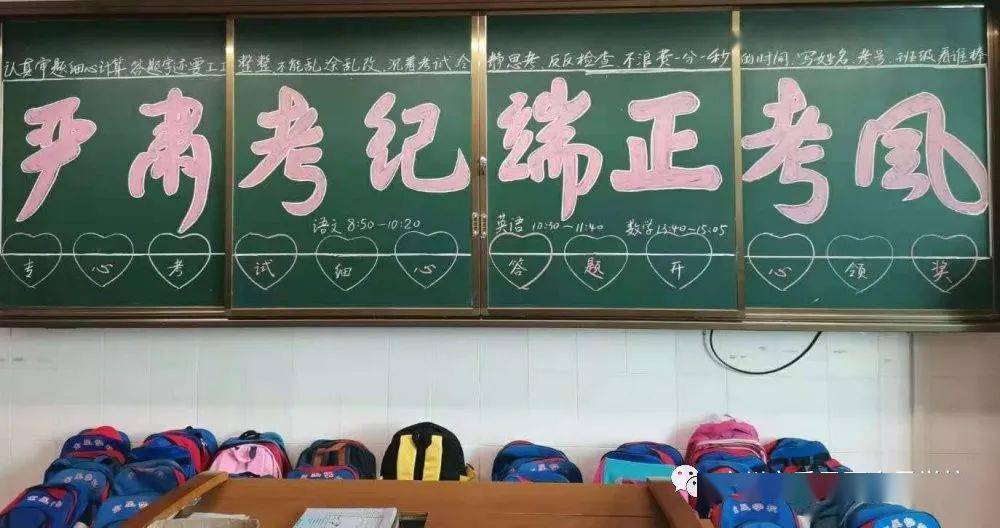 认真审题细心计算 答题字迹要工工整整 不能乱涂乱改 沉着考试冷静思考 反反检查 不浪费一分一秒的时间 写姓名、考号、班级看谁棒
严肃考纪端正考风
语文 8:50-10:20 英语 10:30-11:40 数学13:40-15:05
专心考试细心答题开心领奖